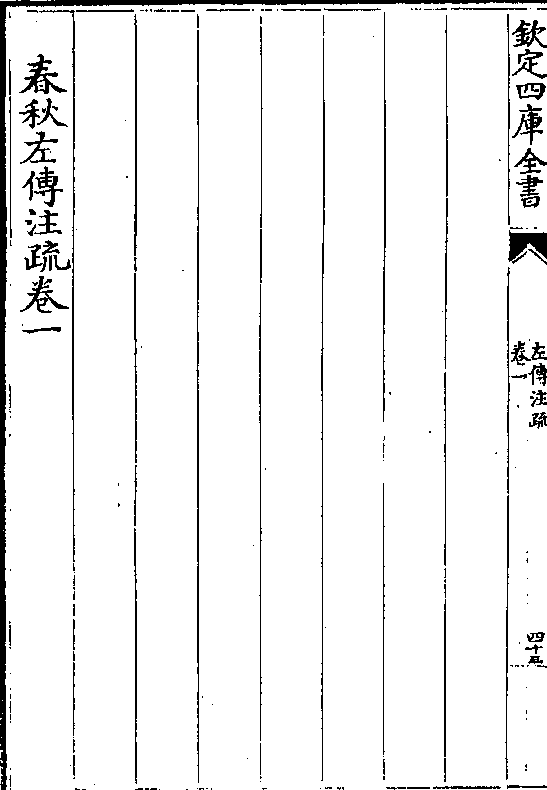 欽定四庫全書
左傳注疏
卷一
四十五
春秋左傳注疏卷一